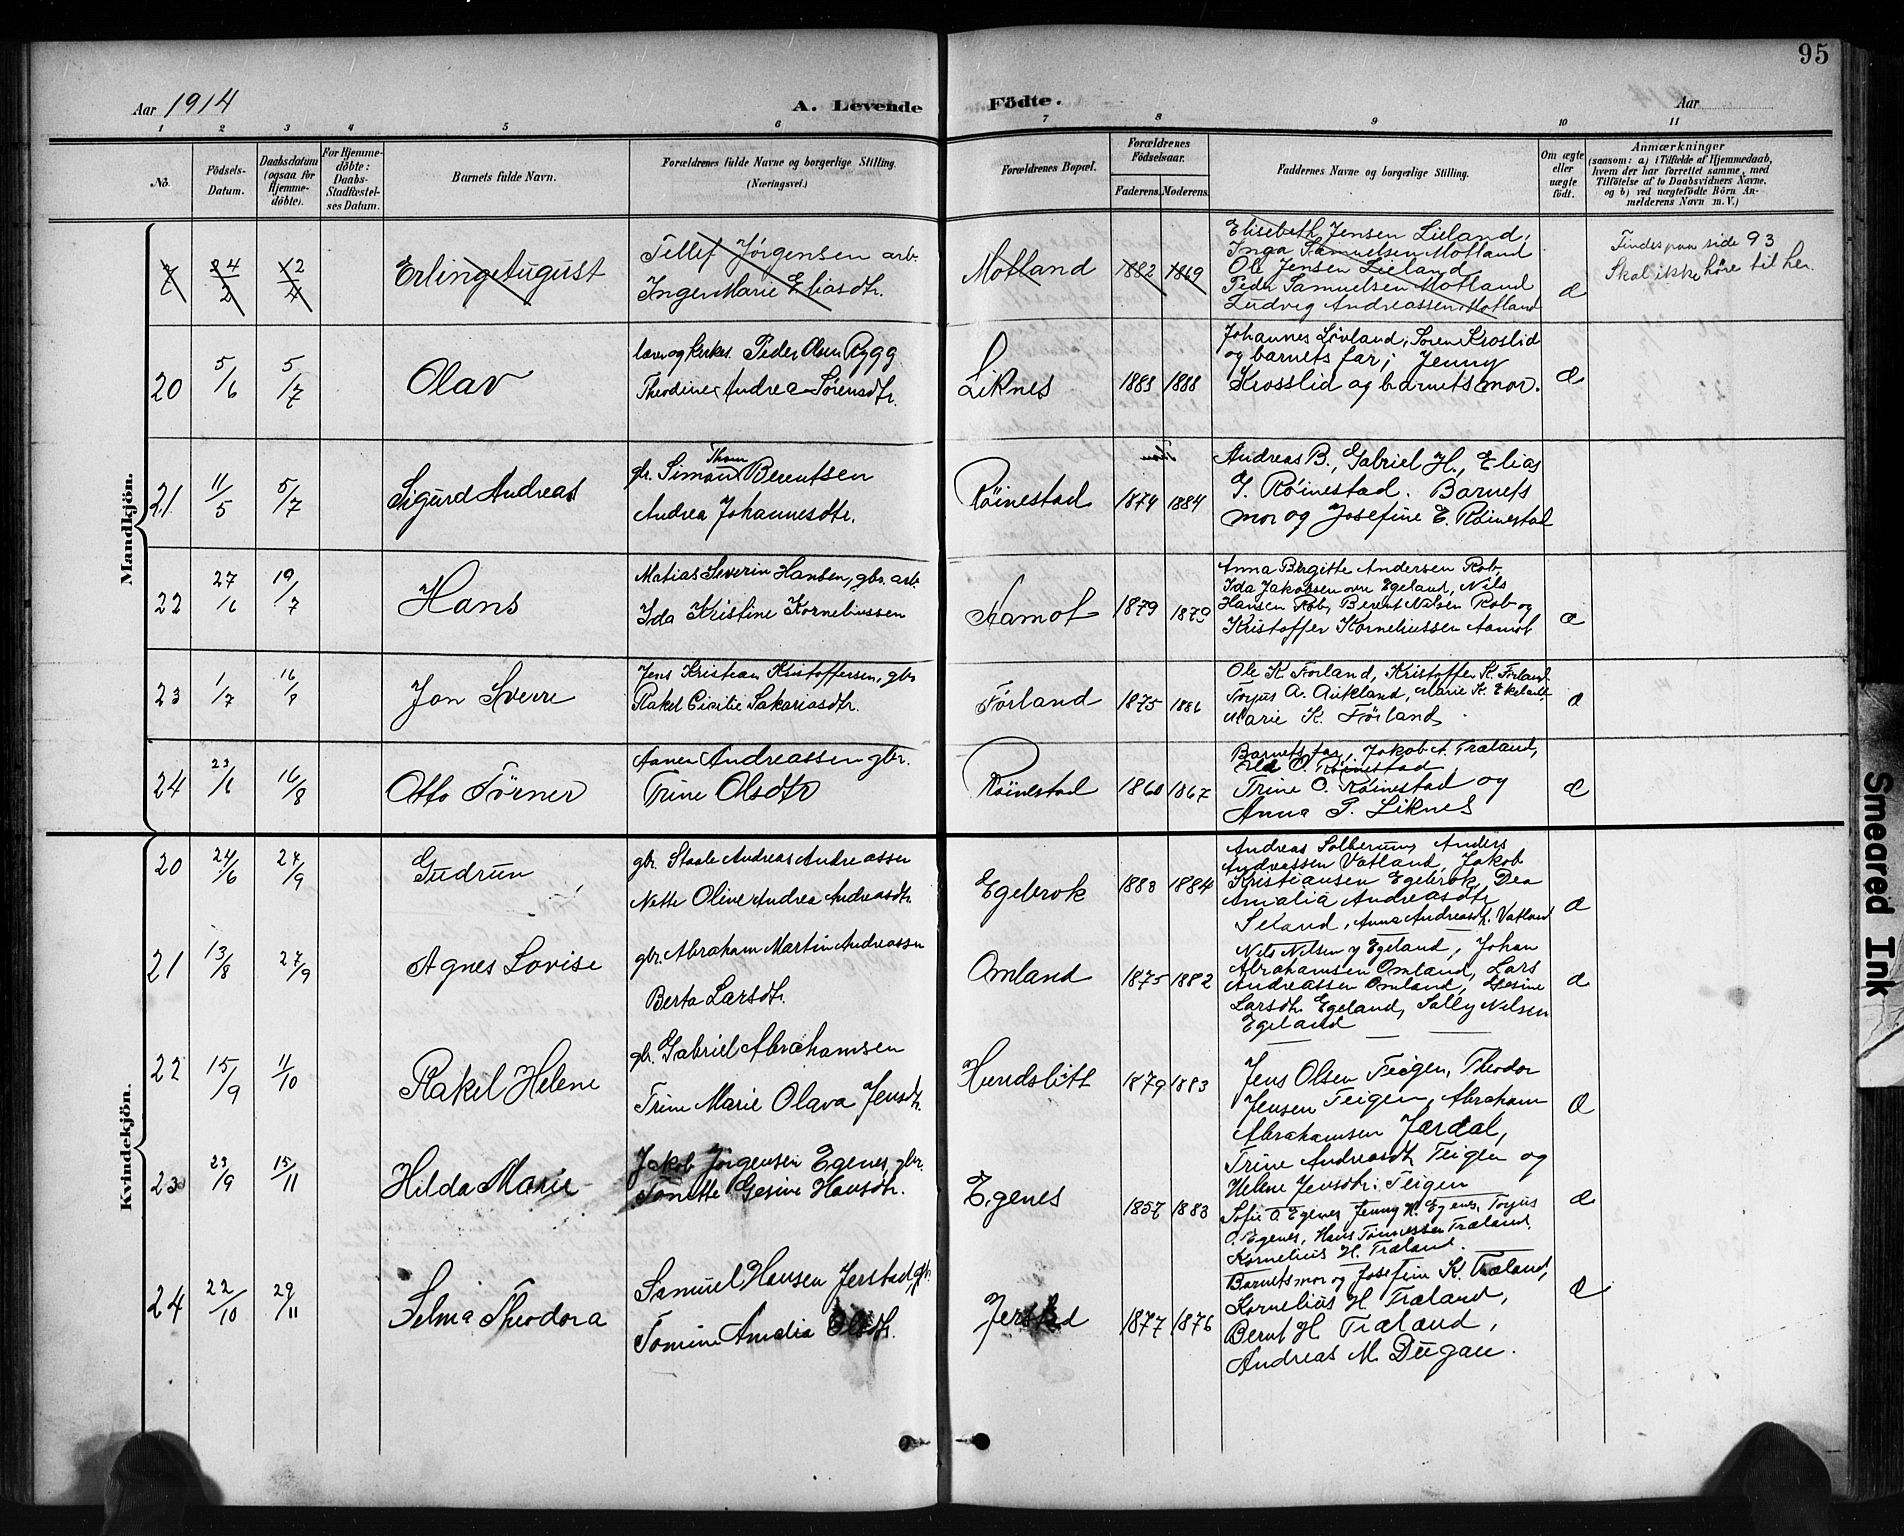 95
Aar 1914
A. Levende Födte.
Aar
1 2 3 4 5 6 7 8 9 10 11
No.
Födsels-
Datum.
Daabsdatum
(ogsaa for
Hjemme-
döbte).
For Hjemme-
döbte:
Daabs-
Stadfæstel-
ses Datum.
Barnets fulde Navn.
Forældrenes fulde Navne og borgerlige Stilling.
(Næringsvei.)
Forældrenes Bopæl.
Forældrenes
Födselsaar.
Faderens. Moderens.
Faddernes Navne og borgerlige Stilling.
Om ægte
eller
uægte
födt.
Anmærkninger
(saasom: a) i Tilfælde af Hjemmedaab,
hvem der har forrettet samme, med
Tilföielse af to Daabsvidners Navne,
og b) ved uægtefödte Börn An-
melderens Navn m. V.)
Mandkjön.
24/2 12/4
Erling August
Tellef Jørgensen arb.
Inger Marie Eliasdtr.
Motland
1882 1889
Elisebeth Jensen Lieland,
Inga Samuelsen Motland
Ole Jensen Lieland
Peder Samuelsen Motland
Ludvig Andreassen Motland
æ
Findes paa side 93
Skal ikke høre til her.
20 5/6 5/7
Olav
lærer og kirkes. Peder Olsen Rygg
Theodine Andrea Sørensdtr.
Liknes
1883 1888
Johannes Løvland, Søren Kroslid
og barnets far; Jenny
Krosslid og barnets mor.
æ
21 11/5 5/7
Sigurd Andreas
Thom
gbr. Simon Berentsen
Andrea Johannesdtr.
Røinestad
1874 1884
Andreas B., Gabriel H., Elias
G. Røinestad. Barnets
mor og Josefine E. Røinestad
22 27/6 19/7
Hans
Matias Severin Hansen, gbr. arb.
Ida Kristine Korneliussen
Aamot
1879 1879
Anna Birgitte Andersen Rob,
Ida Jakobsen øvre Egeland, Nils
Hansen Rob, Berent Nilsen Rob og
Kristoffer Korneliussen Aamot
æ
23 1/7 16/8
Jon Sverre
Jens Kristian Kristoffersen, gbr.
Rakel Cicilie Sakariasdtr.
Førland
1875 1886
Ole K. Førland, Kristoffer K. Førland
Torjus A. Aukland, Marie K. Ekeland
Marie K. Førland
æ
24 23/6 16/8
Otto Tørner
Aanen Andreassen gbr.
Trine Olsdtr
Røinestad
1860 1867
Barnets far, Jakob A. Træland,
O. Røinestad
Trine O. Røinestad og
Anna P. Liknes
æ
Kvindekjön.
20 24/6 27/9
Gudrun
gbr. Staale Andreas Andreassen
Nette Oline Andrea Andreasdtr.
Egebrok
1883 1884
Andreas Salberum, Anders
Andreassen Vatland, Jakob
Kristiansen Egebrok, Dea
Amalia Andreasdtr
Seland, Anna Andreasdt. Vatland
æ
21 13/8 27/9
Agnes Lovise
gbr. Abraham Martin Andreassen
Berta Larsdtr.
Omland
1875 1882
Nils Nilsen y Egeland, Johan
Abrahamsen Omland, Lars
Andreassen Omland, Gesine
Larsdtr. Egeland, Sally Nilsen
Egeland
æ
22 15/9 11/10
Rakel Helene
gbr. Gabriel Abrahamsen
Trine Marie Olava Jensdtr.
Hundsbith
1879 1883
Jens Olsen Teigen, Theodor
Jensen Teigen, Abraham
Abrahamsen Jærdal,
Trine Andreasdtr. Teigen og
Helene Jensdtr. Teigen
æ
23 23/9 15/11
Hilda Marie
Jakob Jørgensen Egenes, gbr.
Tonette Gesine Hansdtr.
Egenes
1857 1883
Sofie O. Egenes, Jenny H. Egenes, Torjus
O. Egenes, Hans Tønnessen Træland,
Kornelius H. Træland.
æ
24 22/10 29/11
Selma Theodora
Samuel Hansen Jerstad gbr.
Tomine Amalia Olsdtr.
Jerstad
1877 1876
Barnets mor og Josefine K. Træland,
Kornelius H. Træland,
Bernt H Træland,
Andreas M. Dugan.
æ
Smeared Ink